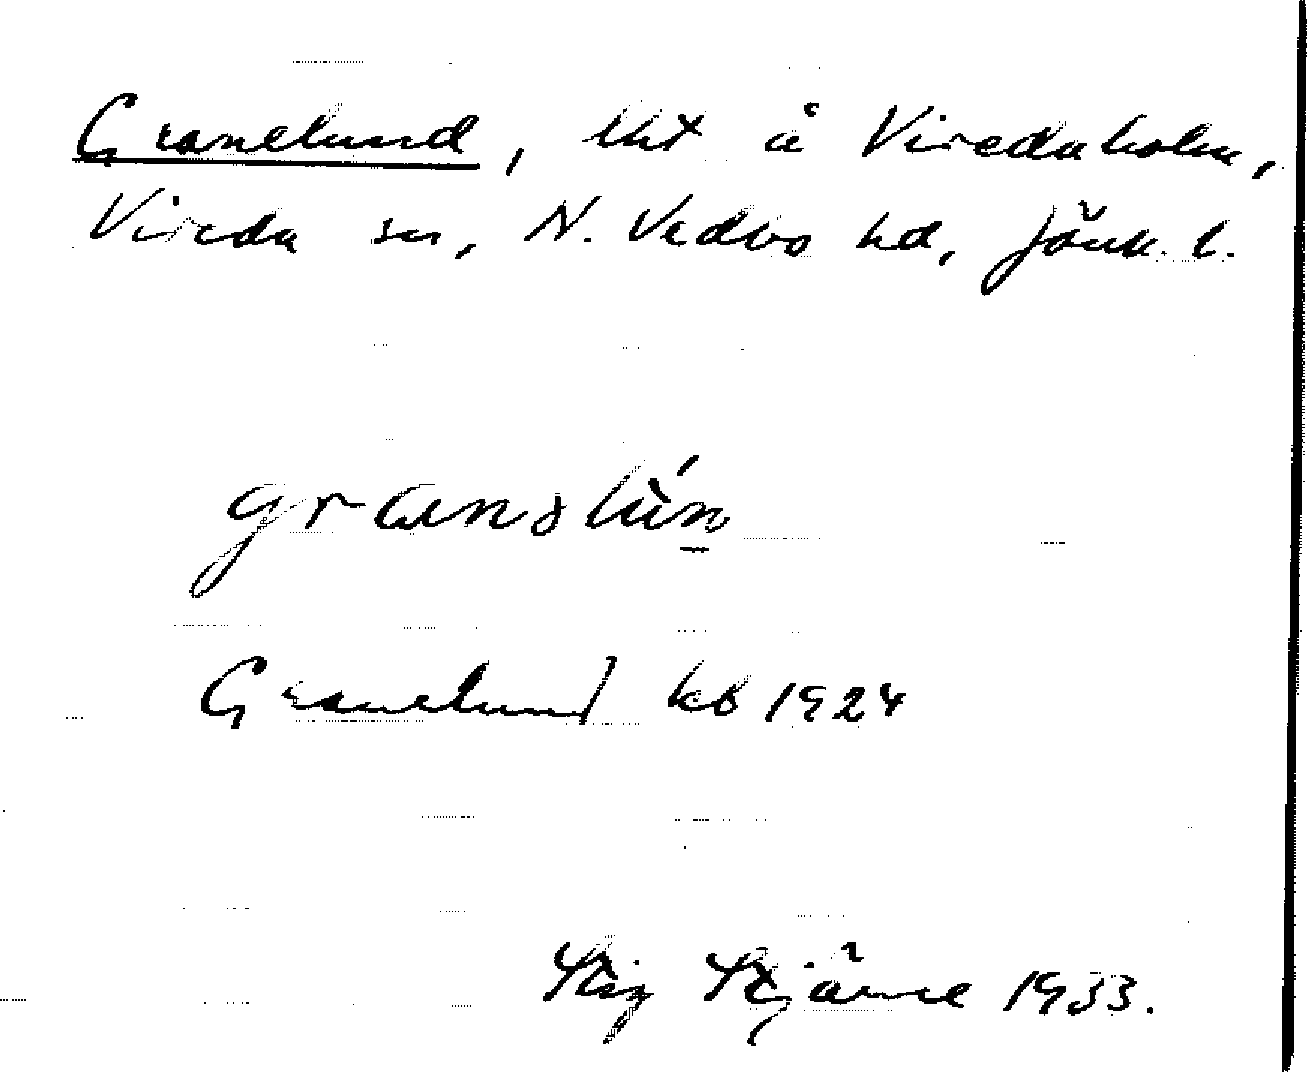 Granelund, lht å Viredaholm,
Vireda sn, N. Vedbo hd, Jönk. l.
grɑnəlùn
Granelund kb 1924
Stig Stjärne 1933.